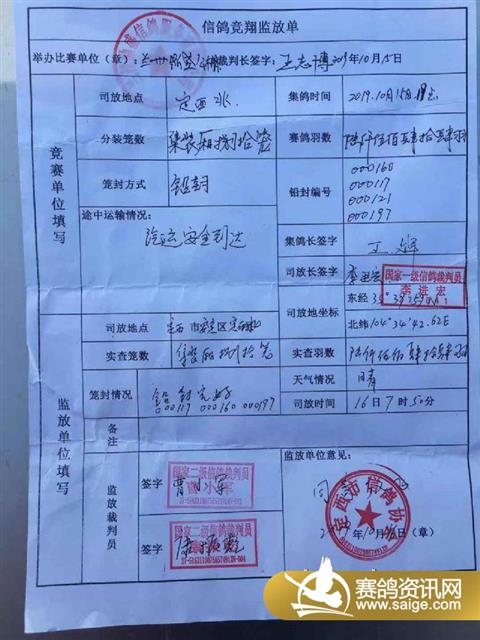 信鸽竞翔监放单
举办比赛单位（章）： 裁判长签字：王志博 2019年10月15日
竞赛单位填写
司放地点 定西北 集鸽时间 2019.10月15日
分装笼数 集装厢捌拾笼 赛鸽羽数 陆仟伍佰肆拾肆羽
笼封方式 铅封 铅封编号 000160
000117
000121
000197
途中运输情况：
汽运安全到达
集鸽长签字 王
司放长签字 李进宏
国家一级信鸽裁判员
李进宏
司放地坐标 东经
北纬 104°34'42.62E
监放单位填写
司放地点 定西市安定区定西北
实查笼数 集装厢捌拾笼 实查羽数 陆仟伍佰肆拾肆羽
笼封情况 铅封完好
000117 000160 000197
天气情况 晴
司放时间 16日7时50分
备注
监放裁判员
签字
国家二级信鸽裁判员
曹小军
签字
国家二级信鸽裁判员
监放单位意见：
同
定西市信鸽协会
年10月16日（章）
赛鸽资讯网
www.saige.com